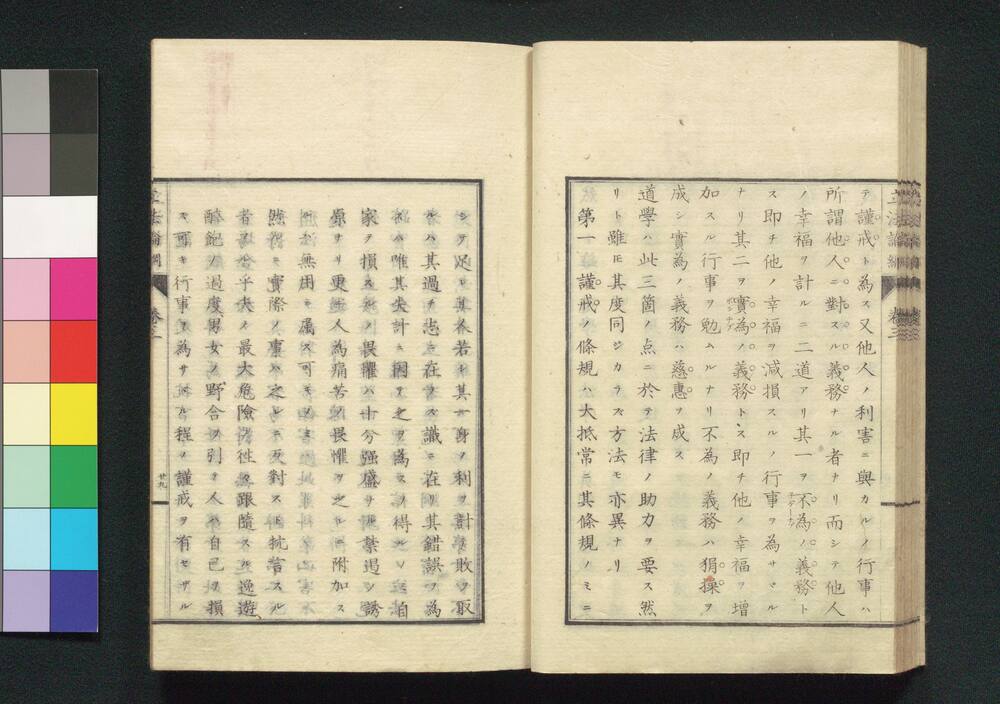 テ謹戒ト為ス又他人ノ利害ニ與カルノ行事ハ
所謂他人ニ對スル義務ナル者ナリ而シテ他人
ノ幸福ヲ計ルニ二道アリ其一ヲ不為ノ義務ト
ス即チ他ノ幸福ヲ減損スルノ行事ヲ為サヾル
ナリ其二ヲ實為ノ義務トス即チ他ノ幸福ヲ増
加スル行事ヲ勉ムルナリ不為ノ義務ハ狷操ヲ
成シ實為ノ義務ハ慈惠ヲ成ス
道學ハ此三箇ノ点ニ於テ法律ノ助力ヲ要ス然
リト雖𪜈其度同ジカラズ方法モ亦異ナリ
第一謹戒ノ條規ハ大抵常ニ其條規ノミニ
シテ足レリ其人若シ其一身ノ利ヲ計テ敗ヲ取
ハ其過チ志ニ在ラズ識ニ在リ其錯誤ヲ為
ハ唯其失計ニ因テ之ヲ為スヲ得ルノミ自
家ヲ損スルノ畏懼ハ十分強盛ナル禁遏ノ誘
原ナリ更ニ人為痛苦ノ畏懼ヲ之レニ附加ス
無用ニ属ス可キ
實際ノ事ハ之レニ反對スト抗言スル
者 最大危險 往々跟隨スル逸遊、
酔飽ノ過度男女ノ野合ヲ引テ人ハ自己ヲ損
ス可キ行事ヲ為サヾル程ノ謹戒ヲ有セザル
立法論綱 卷二 廿九